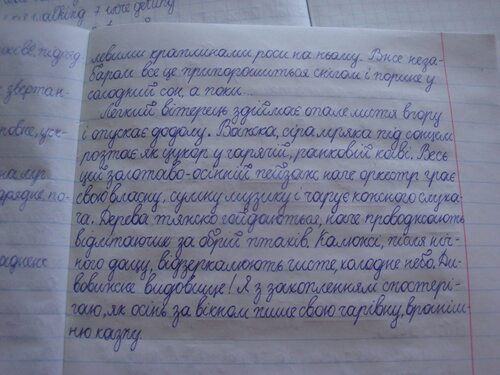 n walking 7 more getting
левими краплинами роси на ньому. Вже неза-
баром все це припорошиться снігом і порине у
солодний сон, а поки...
Легкий вітерець здіймає опале листя вгору
і опускає додолу. Важка, сіра мряка під сонцем
розтає як цукор у гарячій, ранковій каві. Весь
цей золотаво-осінній пейзаж наче оркестр грає
свою власну, сумну музику і чарує кожного слуха-
ча. Дерева тяжко гойдаються, наче проводжають
відлітаючих за обрій птахів. Калюжі, після ніч-
ного дощу, віддзеркалюють чисте, холодне небо. Ди-
вовижне видовище! Я з захопленням спостері-
гаю, як осінь за вікном пише свою чарівну, враніш-
ню казку.
звертан-